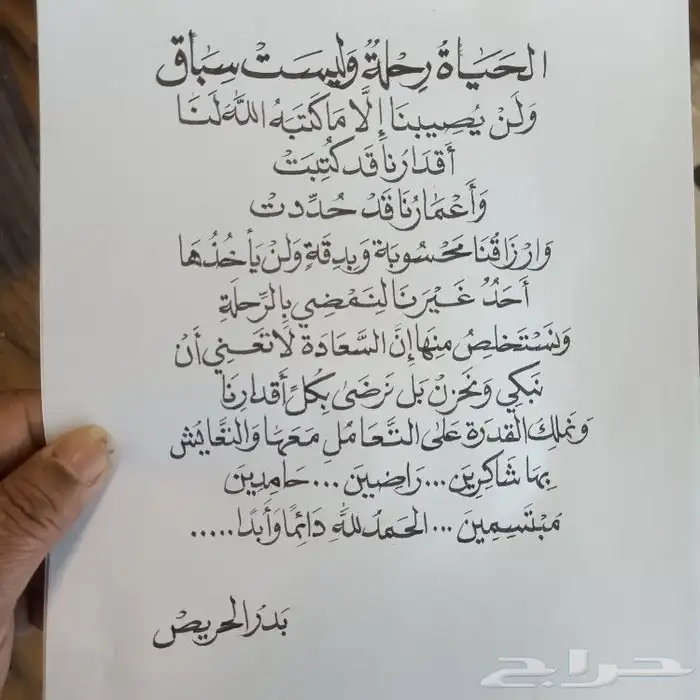 الحَيَاةُ رِحْلَةٌ وَلَيسَتْ سِبَاق
وَلَنْ يُصِيبنَا إِلَّا مَا كَتَبَهُ اللَّهُ لَنَا
أَقدَارُنَا قَد كُتِبَتْ
وَأَعْمَارُنَا قَدْ حُدِّدت
وَارْزَاقُنَا مَحْسُوبَة وَبِدِقَةٍ وَلَنْ يَأخُذُهَا
أَحَدٌ غَيرَنَا لِنَمْضِي بِالرِّحلَةِ
وَنَستَخلِصُ مِنهَا إِنَّ السَّعَادَة لَا تَعْنِي أَنْ
نَبكِي وَنَحزنْ بَل نَرضَى بِكُلِّ أَقدَارِنَا
وَنملِك القدرَة عَلَى التَّعَامُلِ مَعَهَا وَالتَّعَايُش
بِهَا شَاكِرِينَ ... رَاضِينَ ... حَامِدِينَ
مُبْتَسِمِينَ ... الحَمدُ للَّهِ دَائِمًا وَأَبَدًا .....
بَدرُ الحريصْ
حراج